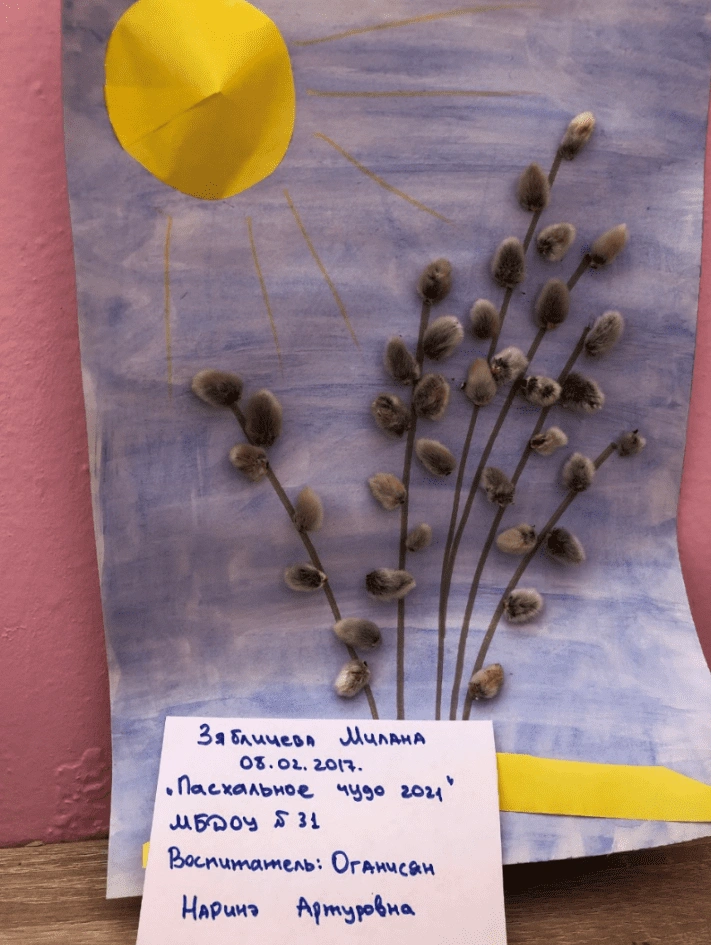 Зябличева Милана
08.02.2017.
"Пасхальное чудо 2021"
МБДОУ № 31
Воспитатель: Оганисян
Наринэ Артуровна